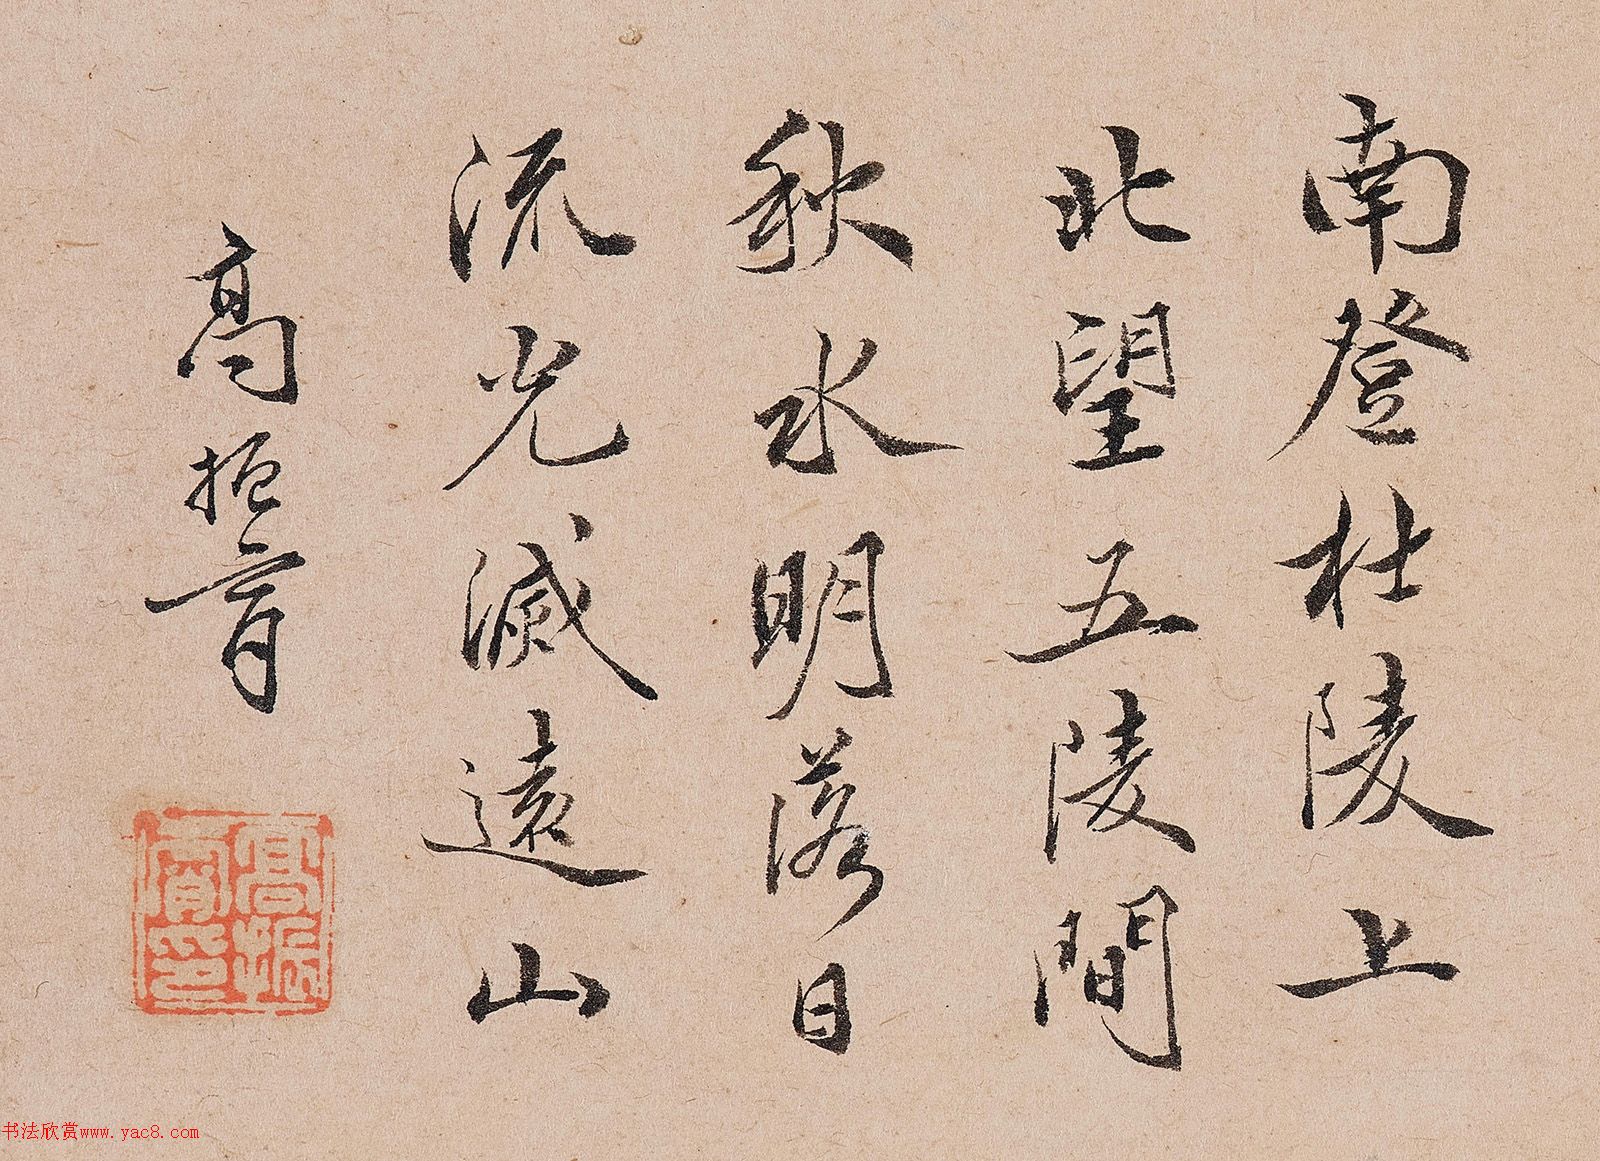 南登杜陵上
北望五陵間
秋水明落日
流光滅遠山
高振霄
高振
霄印
书法欣赏www.yac8.com